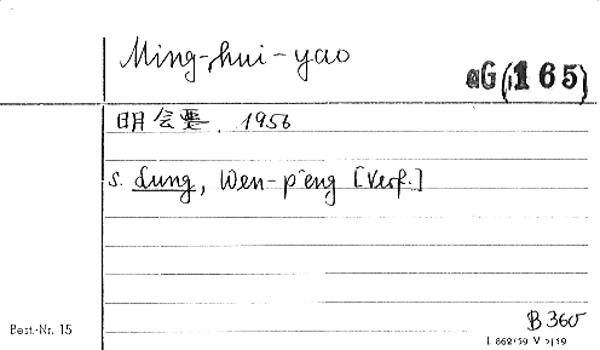 Ming-hui-yao
aG(165)
明会要. 1956
s. Lung, Wen-p'eng [Verf.]
B 360
Best.-Nr. 15